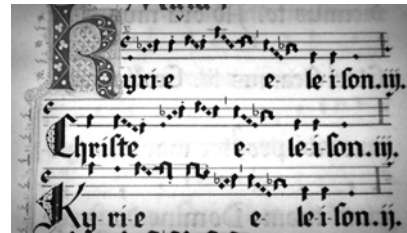 Kyrie e le-i-son.iij.
Christe e- le-i-son.iij.
Ky-ri-e e le-i-son.ij.